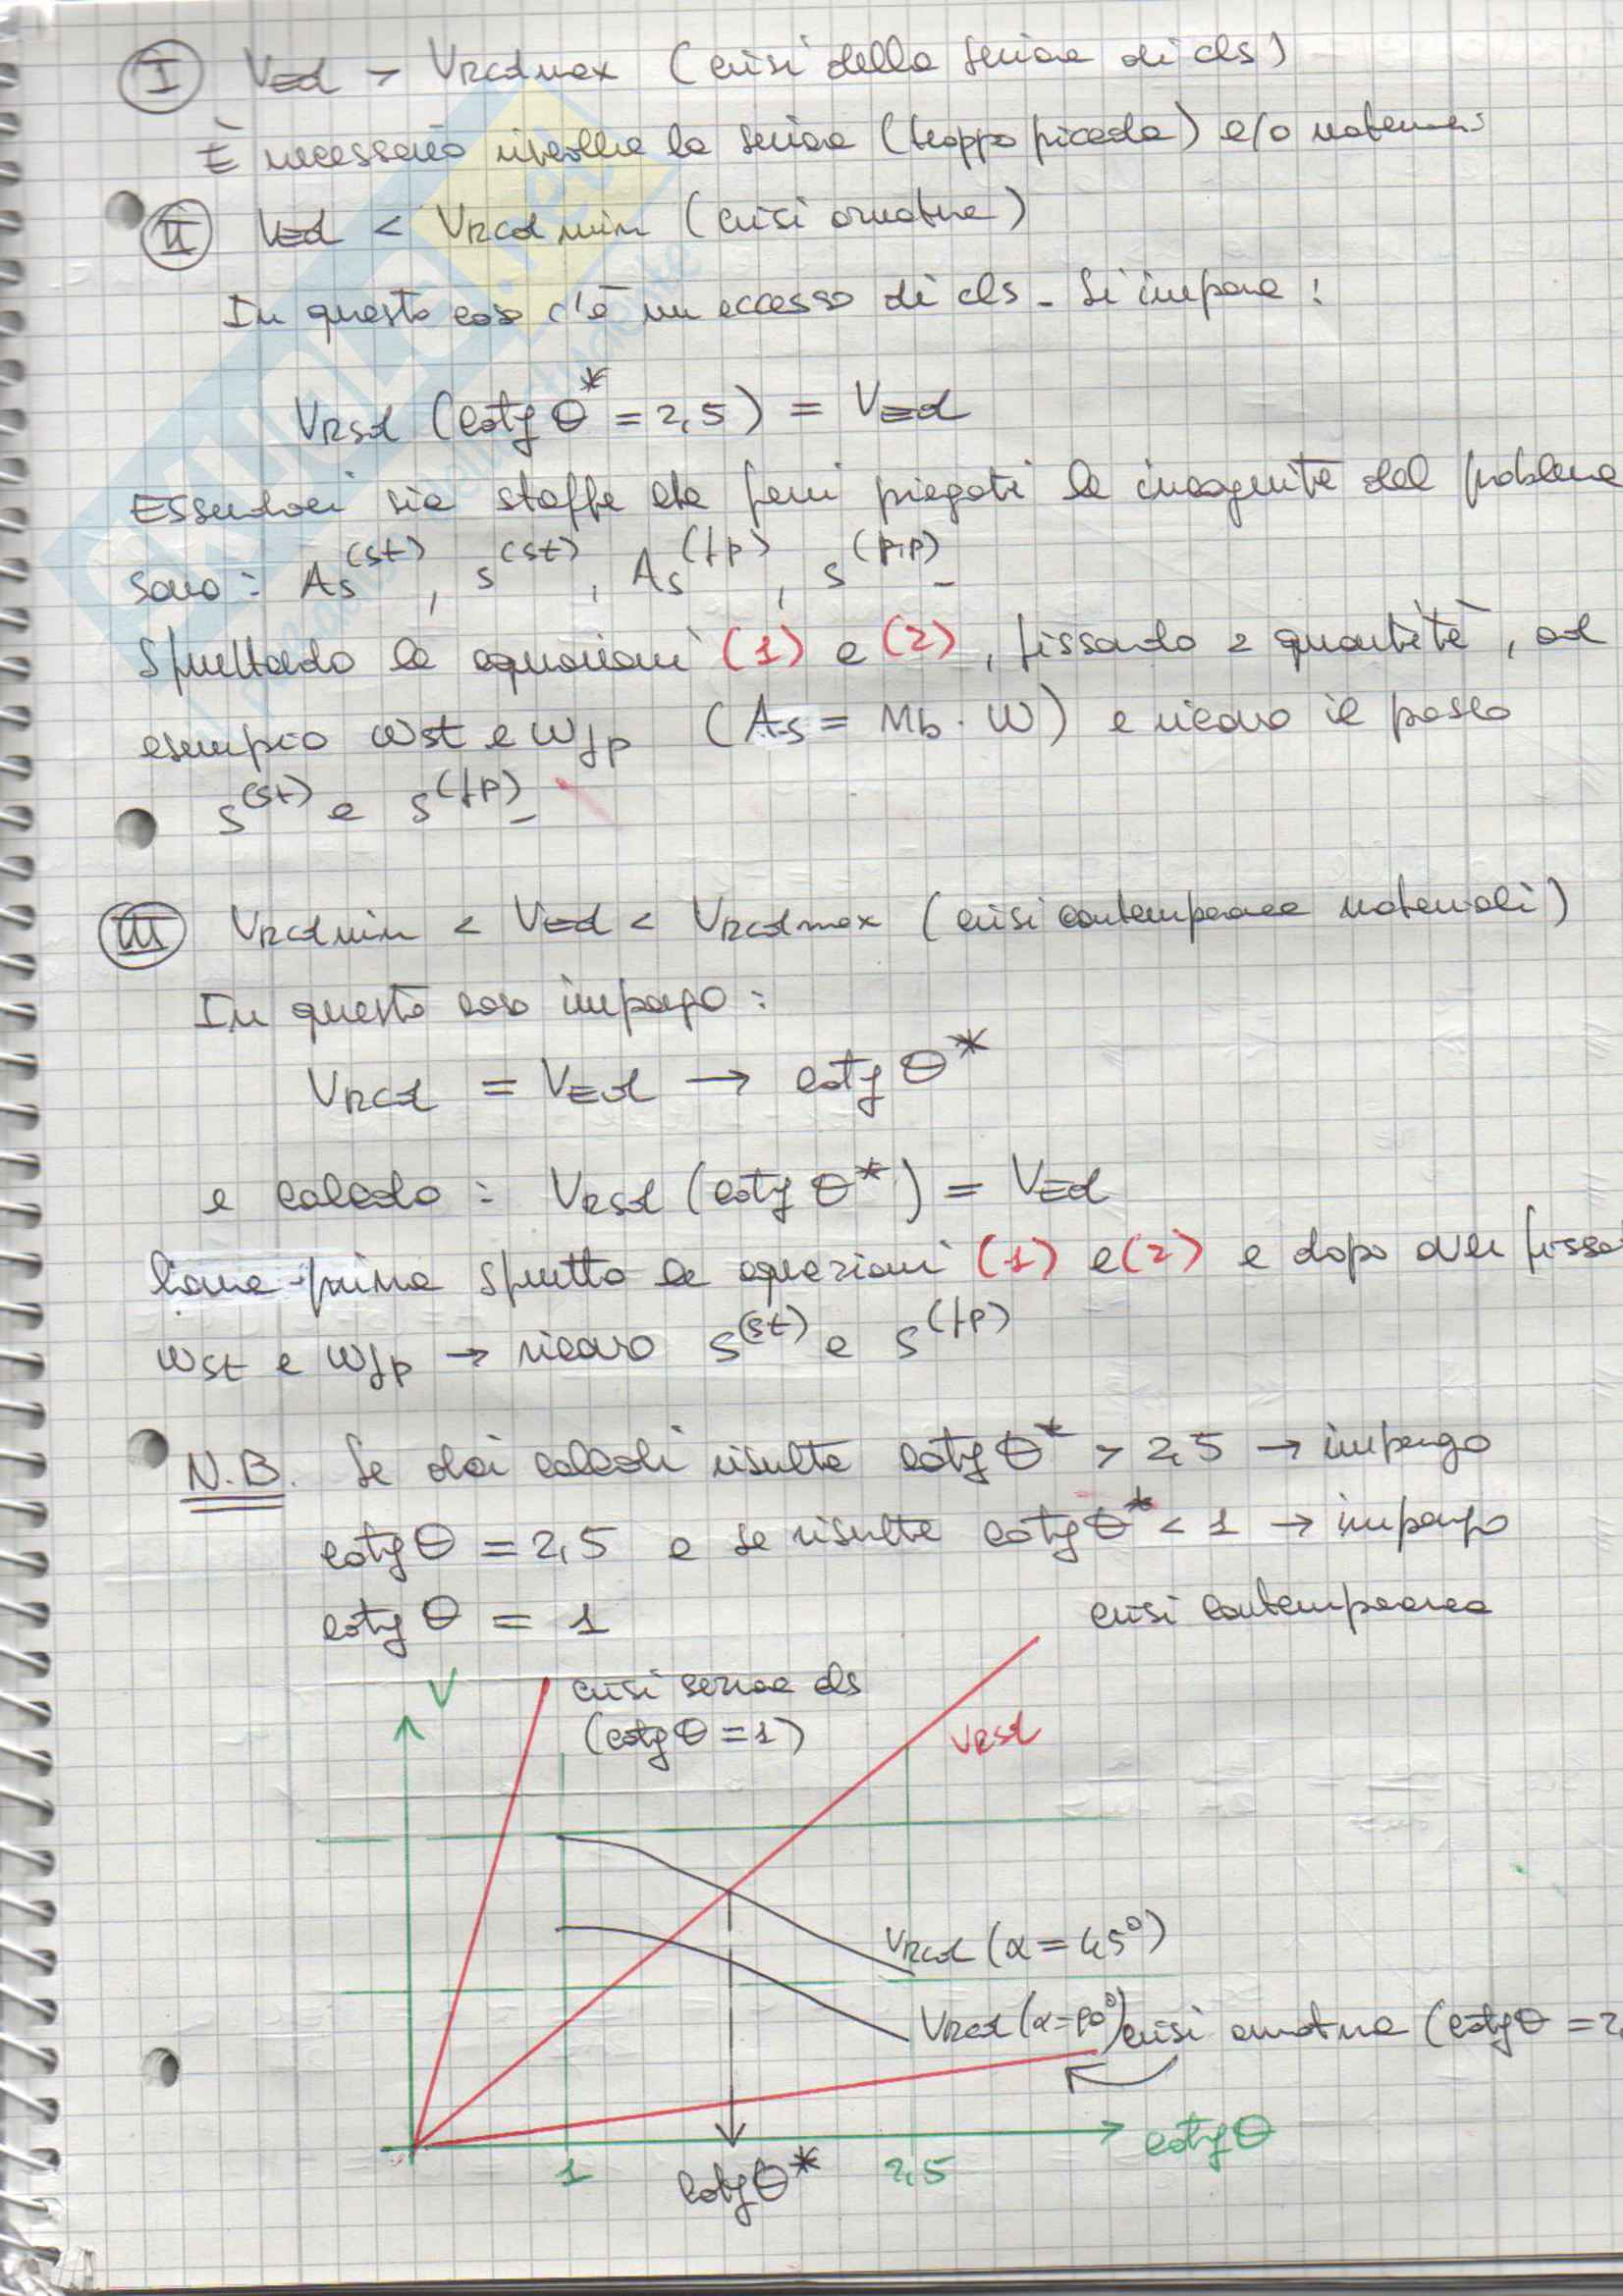 I VEd > VRcdmax (crisi della sezione di cls)
È necessario rivedere la sezione (troppo piccola) e/o materiali
II VEd < VRcd min (crisi armature)
In questo caso c'è un eccesso di cls - Si impone :
VRsd (cotg θ* = 2,5) = VEd
Essendoci sia staffe che ferri piegati le incognite del problema
sono : As(st) , s(st) , As(fp) , s(p.p) -
Sfruttando le equazioni (1) e (2) , fissando 2 quantità , ad
esempio wst e wfp (As = Mb · W) e ricavo il passo
s(st) e s(fp) -
III VRcdmin < VEd < VRcdmax (crisi contemporanea materiali)
In questo caso impongo :
VRcd = VEd → cotg θ*
e calcolo : VRsd (cotg θ*) = VEd
Come prima sfrutto le equazioni (1) e (2) e dopo aver fissa
wst e wfp → ricavo s(st) e s(fp)
N.B. Se dai calcoli risulta cotg θ* > 2,5 → impongo
cotg θ = 2,5 e se risulta cotg θ* < 1 → impongo
cotg θ = 1
crisi contemporanea
V
crisi sezione cls
(cotg θ = 1)
VRsd
VRcd (α = 45°)
VRcd (α=90°)
crisi armatura (cotg θ = 2,
cotg θ
1
cotg θ*
2,5